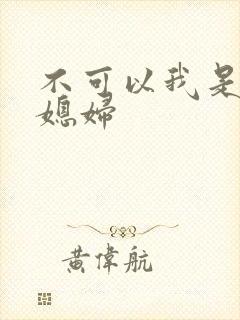 不可以我是
媳妇
黄偉航